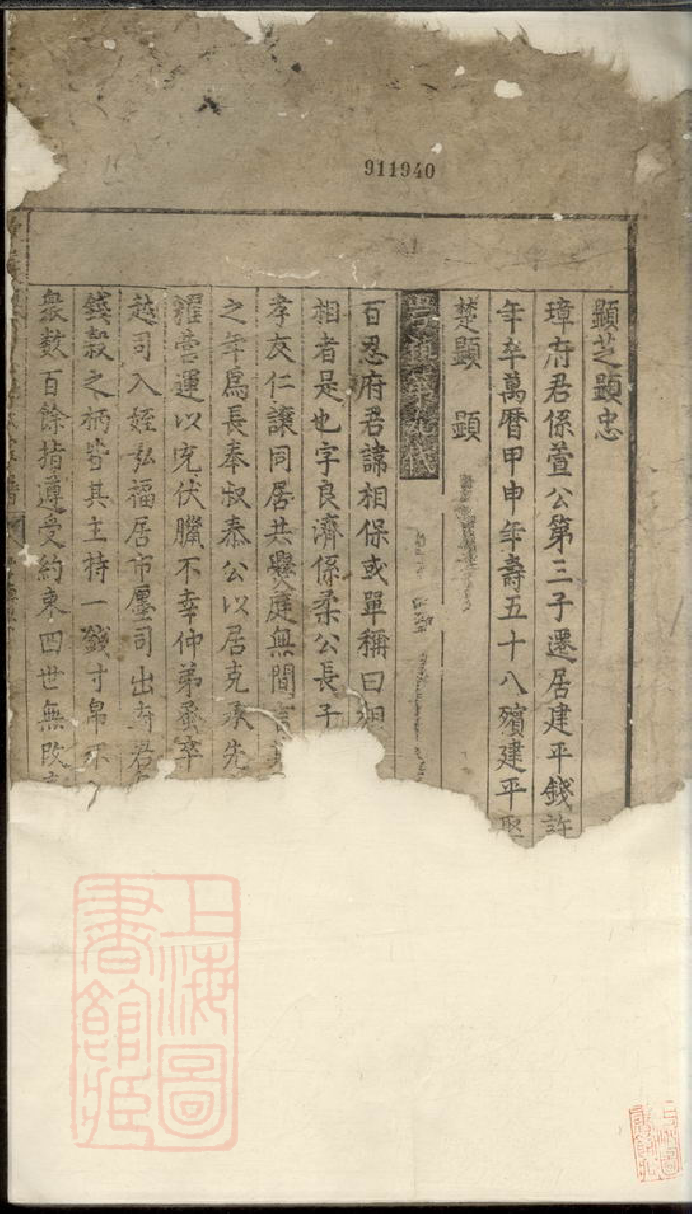 911940
顯芝顯忠
璋府君係萱公第三子遷居建平錢許
年卒萬曆甲申年壽五十八殯建平娶
楚顯　顯
百忍府君諱相保或單稱曰相
相者是也字良濟係柔公長子
孝友仁讓同居共爨庭無間言
之年爲長奉叔泰公以居克承先
糴營運以充伏臘不幸仲弟蚤卒
越司入姪弘福居市廛司出府君
錢穀之柄皆其主持一錢寸帛不
衆數百餘指遵受約束四世無改
上海圖書館藏